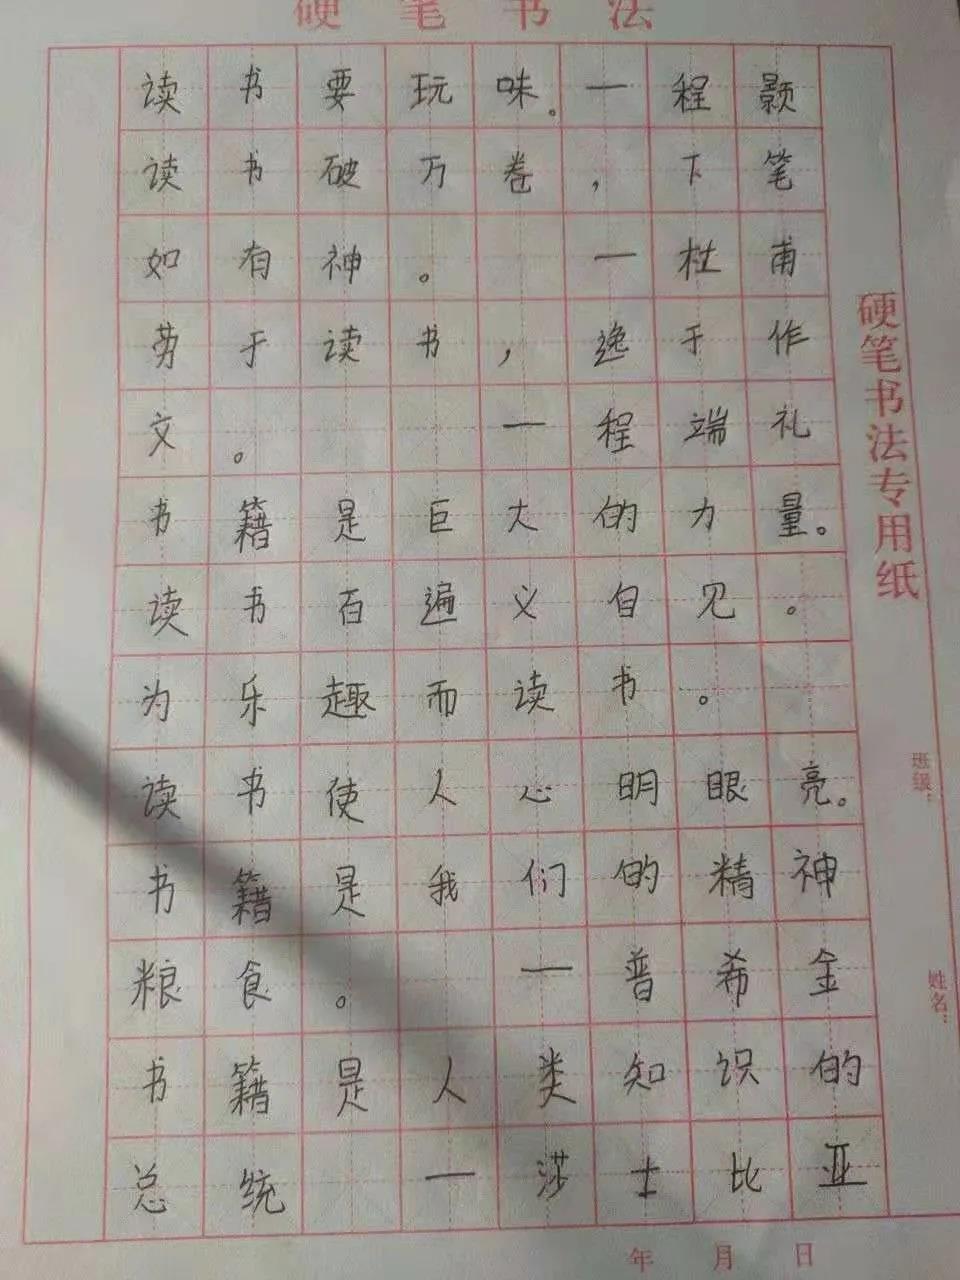 硬笔书法
读书要玩味。一程颢
读书破万卷,下笔
如有神。一杜甫
劳于读书,逸于作
文。一程端礼
书籍是巨大的力量。
读书百遍义自见。
为乐趣而读书。
读书使人心明眼亮。
书籍是我们的精神
粮食。一普希金
书籍是人类知识的
总统一莎士比亚
硬笔书法专用纸
班级:
姓名:
年 月 日